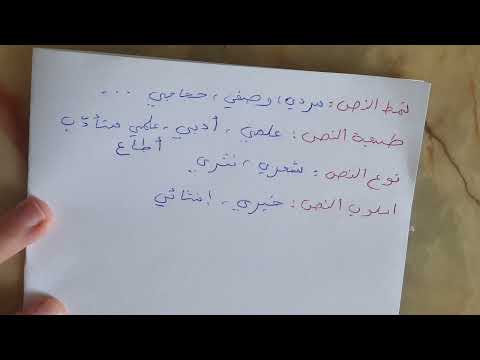 نمط النص : سردي، وصفي، حجاجي ...
طبيعة النص : علمي، أدبي، علمي متأدب
نوع النص : شعري، نثري
اسلوب النص : خبري، إنشائي